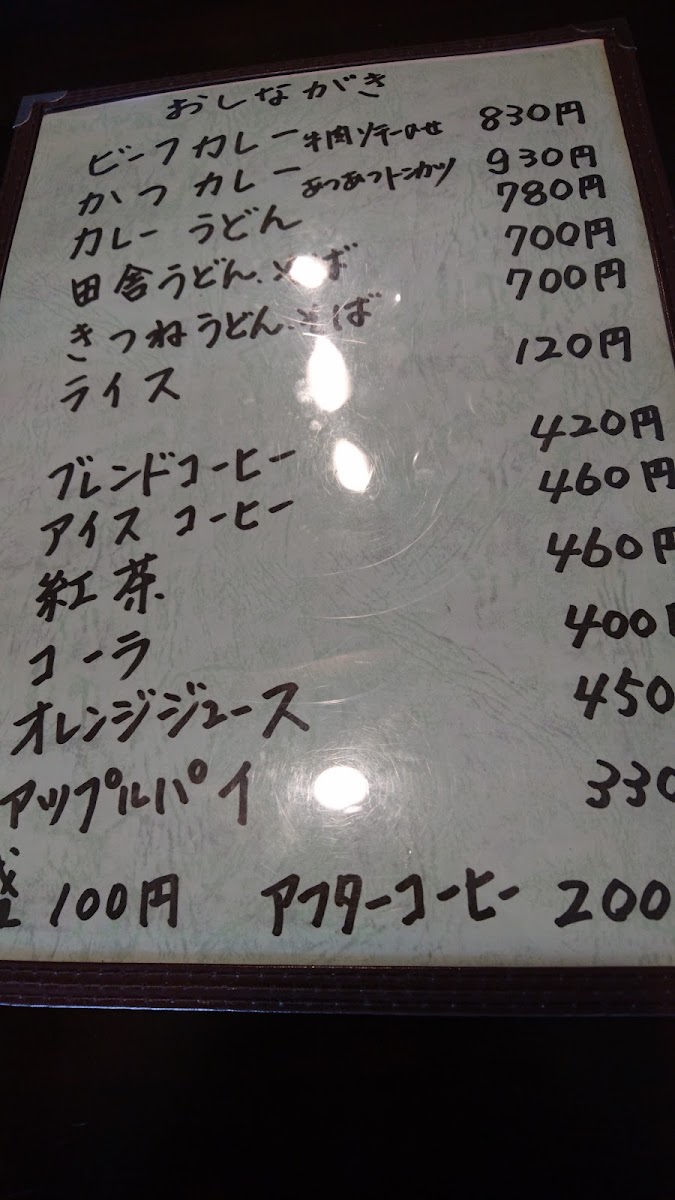 おしながき
ビーフカレー 牛肉ソテーのせ 830円
かつカレー あつあつトンカツ 930円
カレーうどん 780円
田舎うどん、そば 700円
きつねうどん、そば 700円
ライス 120円
ブレンドコーヒー 420円
アイスコーヒー 460円
紅茶 460円
コーラ 400円
オレンジジュース 450
アップルパイ 330
盛 100円 アフターコーヒー 200